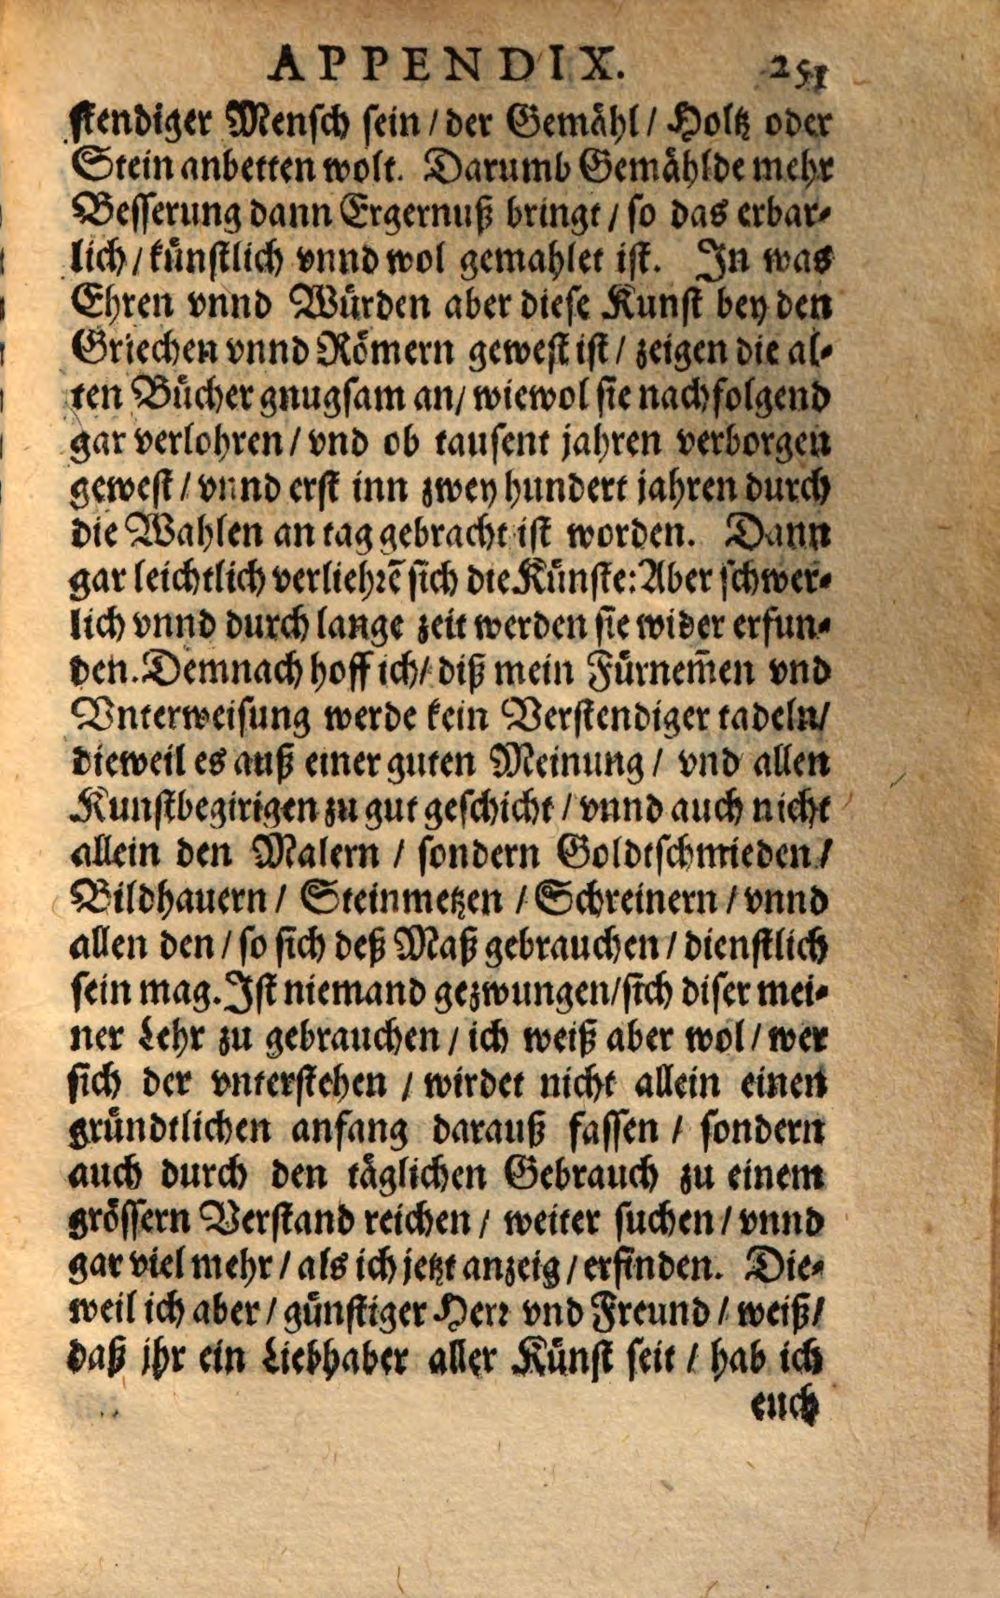 APPENDIX. 251
stendiger Mensch sein / der Gemähl / Holtz oder
Stein anbetten wolt. Darumb Gemählde mehr
Besserung dann Ergernuß bringt / so das erbar-
lich / künstlich vnnd wol gemahlet ist. In was
Ehren vnnd Würden aber diese Kunst bey den
Griechen vnnd Römern gewest ist / zeigen die al-
ten Bücher gnugsam an / wiewol sie nachfolgend
gar verlohren / vnd ob tausent jahren verborgen
gewest / vnnd erst inn zwey hundert jahren durch
die Wahlen an tag gebracht ist worden. Dann
gar leichtlich verliehrē sich die Künste: Aber schwer-
lich vnnd durch lange zeit werden sie wider erfun-
den. Demnach hoff ich / diß mein Fürnem̃en vnd
Vnterweisung werde kein Verstendiger tadeln /
dieweil es auß einer guten Meinung / vnd allen
Kunstbegirigen zu gut geschicht / vnnd auch nicht
allein den Malern / sondern Goldtschmieden /
Bildhauern / Steinmetzen / Schreinern / vnnd
allen den / so sich deß Maß gebrauchen / dienstlich
sein mag. Ist niemand gezwungen / sich diser mei-
ner Lehr zu gebrauchen / ich weiß aber wol / wer
sich der vnterstehen / wirdet nicht allein einen
gründtlichen anfang darauß fassen / sondern
auch durch den täglichen Gebrauch zu einem
grössern Verstand reichen / weiter suchen / vnnd
gar viel mehr / als ich jetzt anzeig / erfinden. Die-
weil ich aber / günstiger Herr vnd Freund / weiß /
daß jhr ein Liebhaber aller Künst seit / hab ich
euch